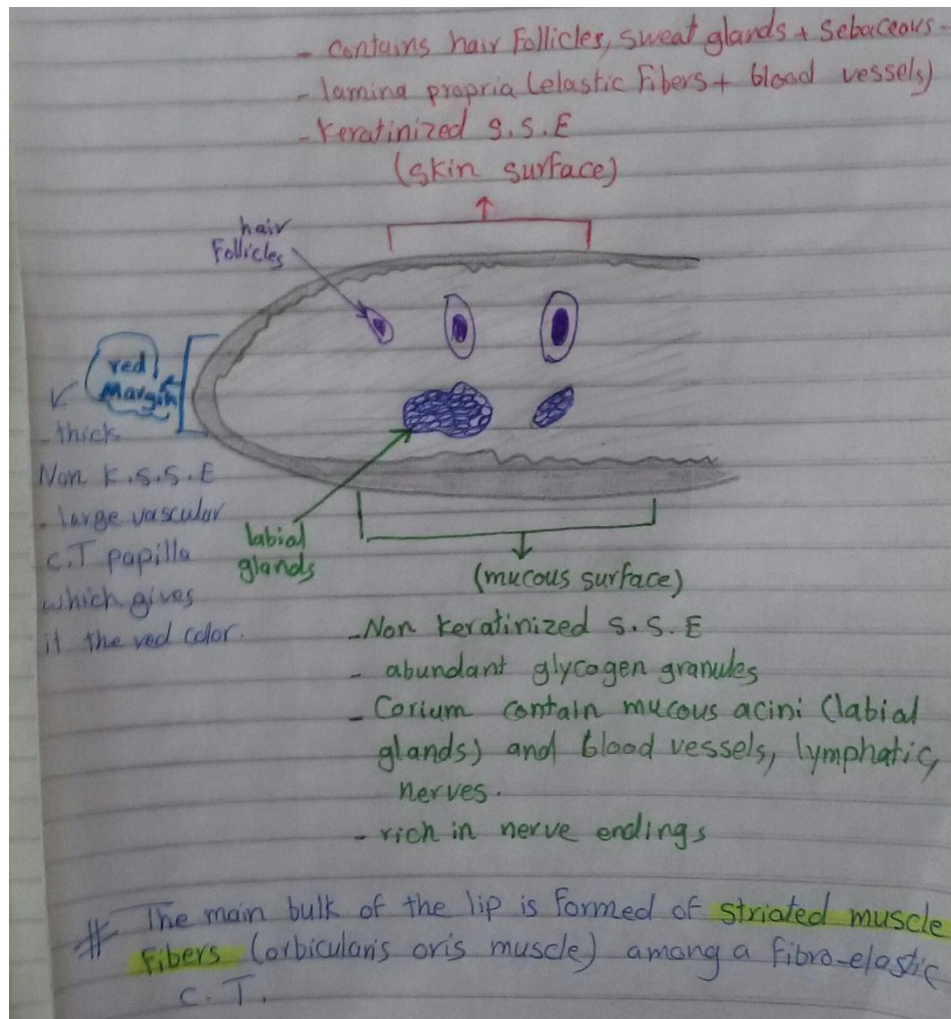 - contains hair Follicles, sweat glands + Sebaceous -
- lamina propria (elastic Fibers + blood vessels)
- Keratinized S.S.E
(skin surface)
hair
Follicles
red
Margin
- thick
Non K.S.S.E
- large vascular
C.T papilla
which gives
it the red color.
labial
glands
(mucous surface)
- Non keratinized S.S.E
- abundant glycogen granules
- Corium contain mucous acini (labial
glands) and blood vessels, lymphatic,
nerves.
- rich in nerve endings
# The main bulk of the lip is formed of striated muscle
Fibers (orbicularis oris muscle) among a Fibro-elastic
C.T.